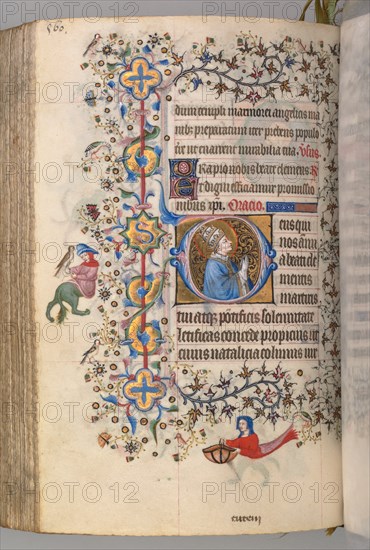 560.
dium templi marmorei angelicis ma
nibus preparatum iter prebens populo
ut enarrent mirabilia tua. Vsus
Ora pro nobis beate clemens. R
Et digni efficiamur promissio
nibus xpi. Oracio.
Deus qui
nos ann
a beati de
mentis
martiris
tui atqz pontificis solennitate
letificas concede propicius ut
cuius natalicia colimus uir